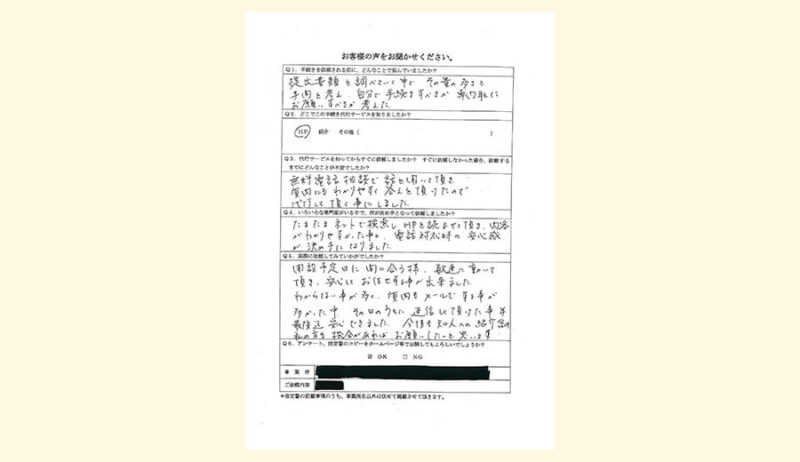 お客様の声をお聞かせください。
Q1．手続きを依頼される前に、どんなことで悩んでいましたか？
提出書類を調べていく中で その量の多さと
手間を考え、自分で手続きすべきか 専門職に
お願いすべきか 考えた。
Q2．どこでこの手続き代行サービスを知りましたか？
HP 紹介 その他（ ）
Q3．代行サービスを知ってからすぐに依頼しましたか？ すぐに依頼しなかった場合、依頼する
までにどんなことが不安でしたか？
無料電話相談で 話を聞いて頂き
質問にもわかりやすく 答えを頂けたので
代行して頂く事にしました。
Q4．いろいろな専門家がいる中で、何が決め手となって依頼しましたか？
たまたま ネットで検索し HPを読ませて頂き、内容
がわかりやすかった事と、電話対応時の安心感
が 決め手になりました。
Q5．実際に依頼してみていかがでしたか？
開設予定日に 間に合う様、敏速に動いて
頂き、安心して お任せする事が出来ました
わからない事が多く、質問をメールでする事が
多かった中、その日のうちに 返信して頂けた事も
最後迄 安心できました。今後も知人への紹介
私の方も 機会があれば お願いしたいと思います
Q6．アンケート、指定書のコピーをホームページ等で公開してもよろしいでしょうか？
☑ OK □ NG
事業所
ご依頼内容
＊指定書の記載事項のうち、事業所名以外は伏せて掲載させて頂きます。